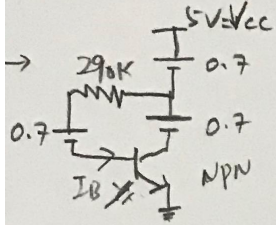 5V=Vcc
290K
0.7
0.7
0.7
IB
NPN